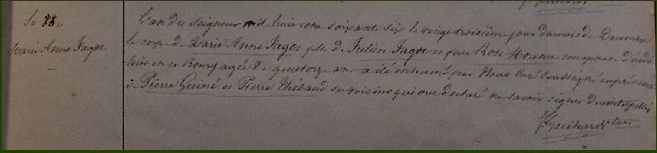 Le 23.
Marie Anne Jagot
L'an du Seigneur mil huit cent soixante six le vingt troisième jour du mois de Décembre
le corps de Marie Anne Jagot fille de Julien Jagot et feue Rose Moreau
hier en ce Bourg agée de quatorze ans a été inhumé par Nous soussigné en présence
de Pierre Guiné et Pierre Thébaud ses voisins qui ont déclaré ne savoir signer de ce interpellés
J Guihard